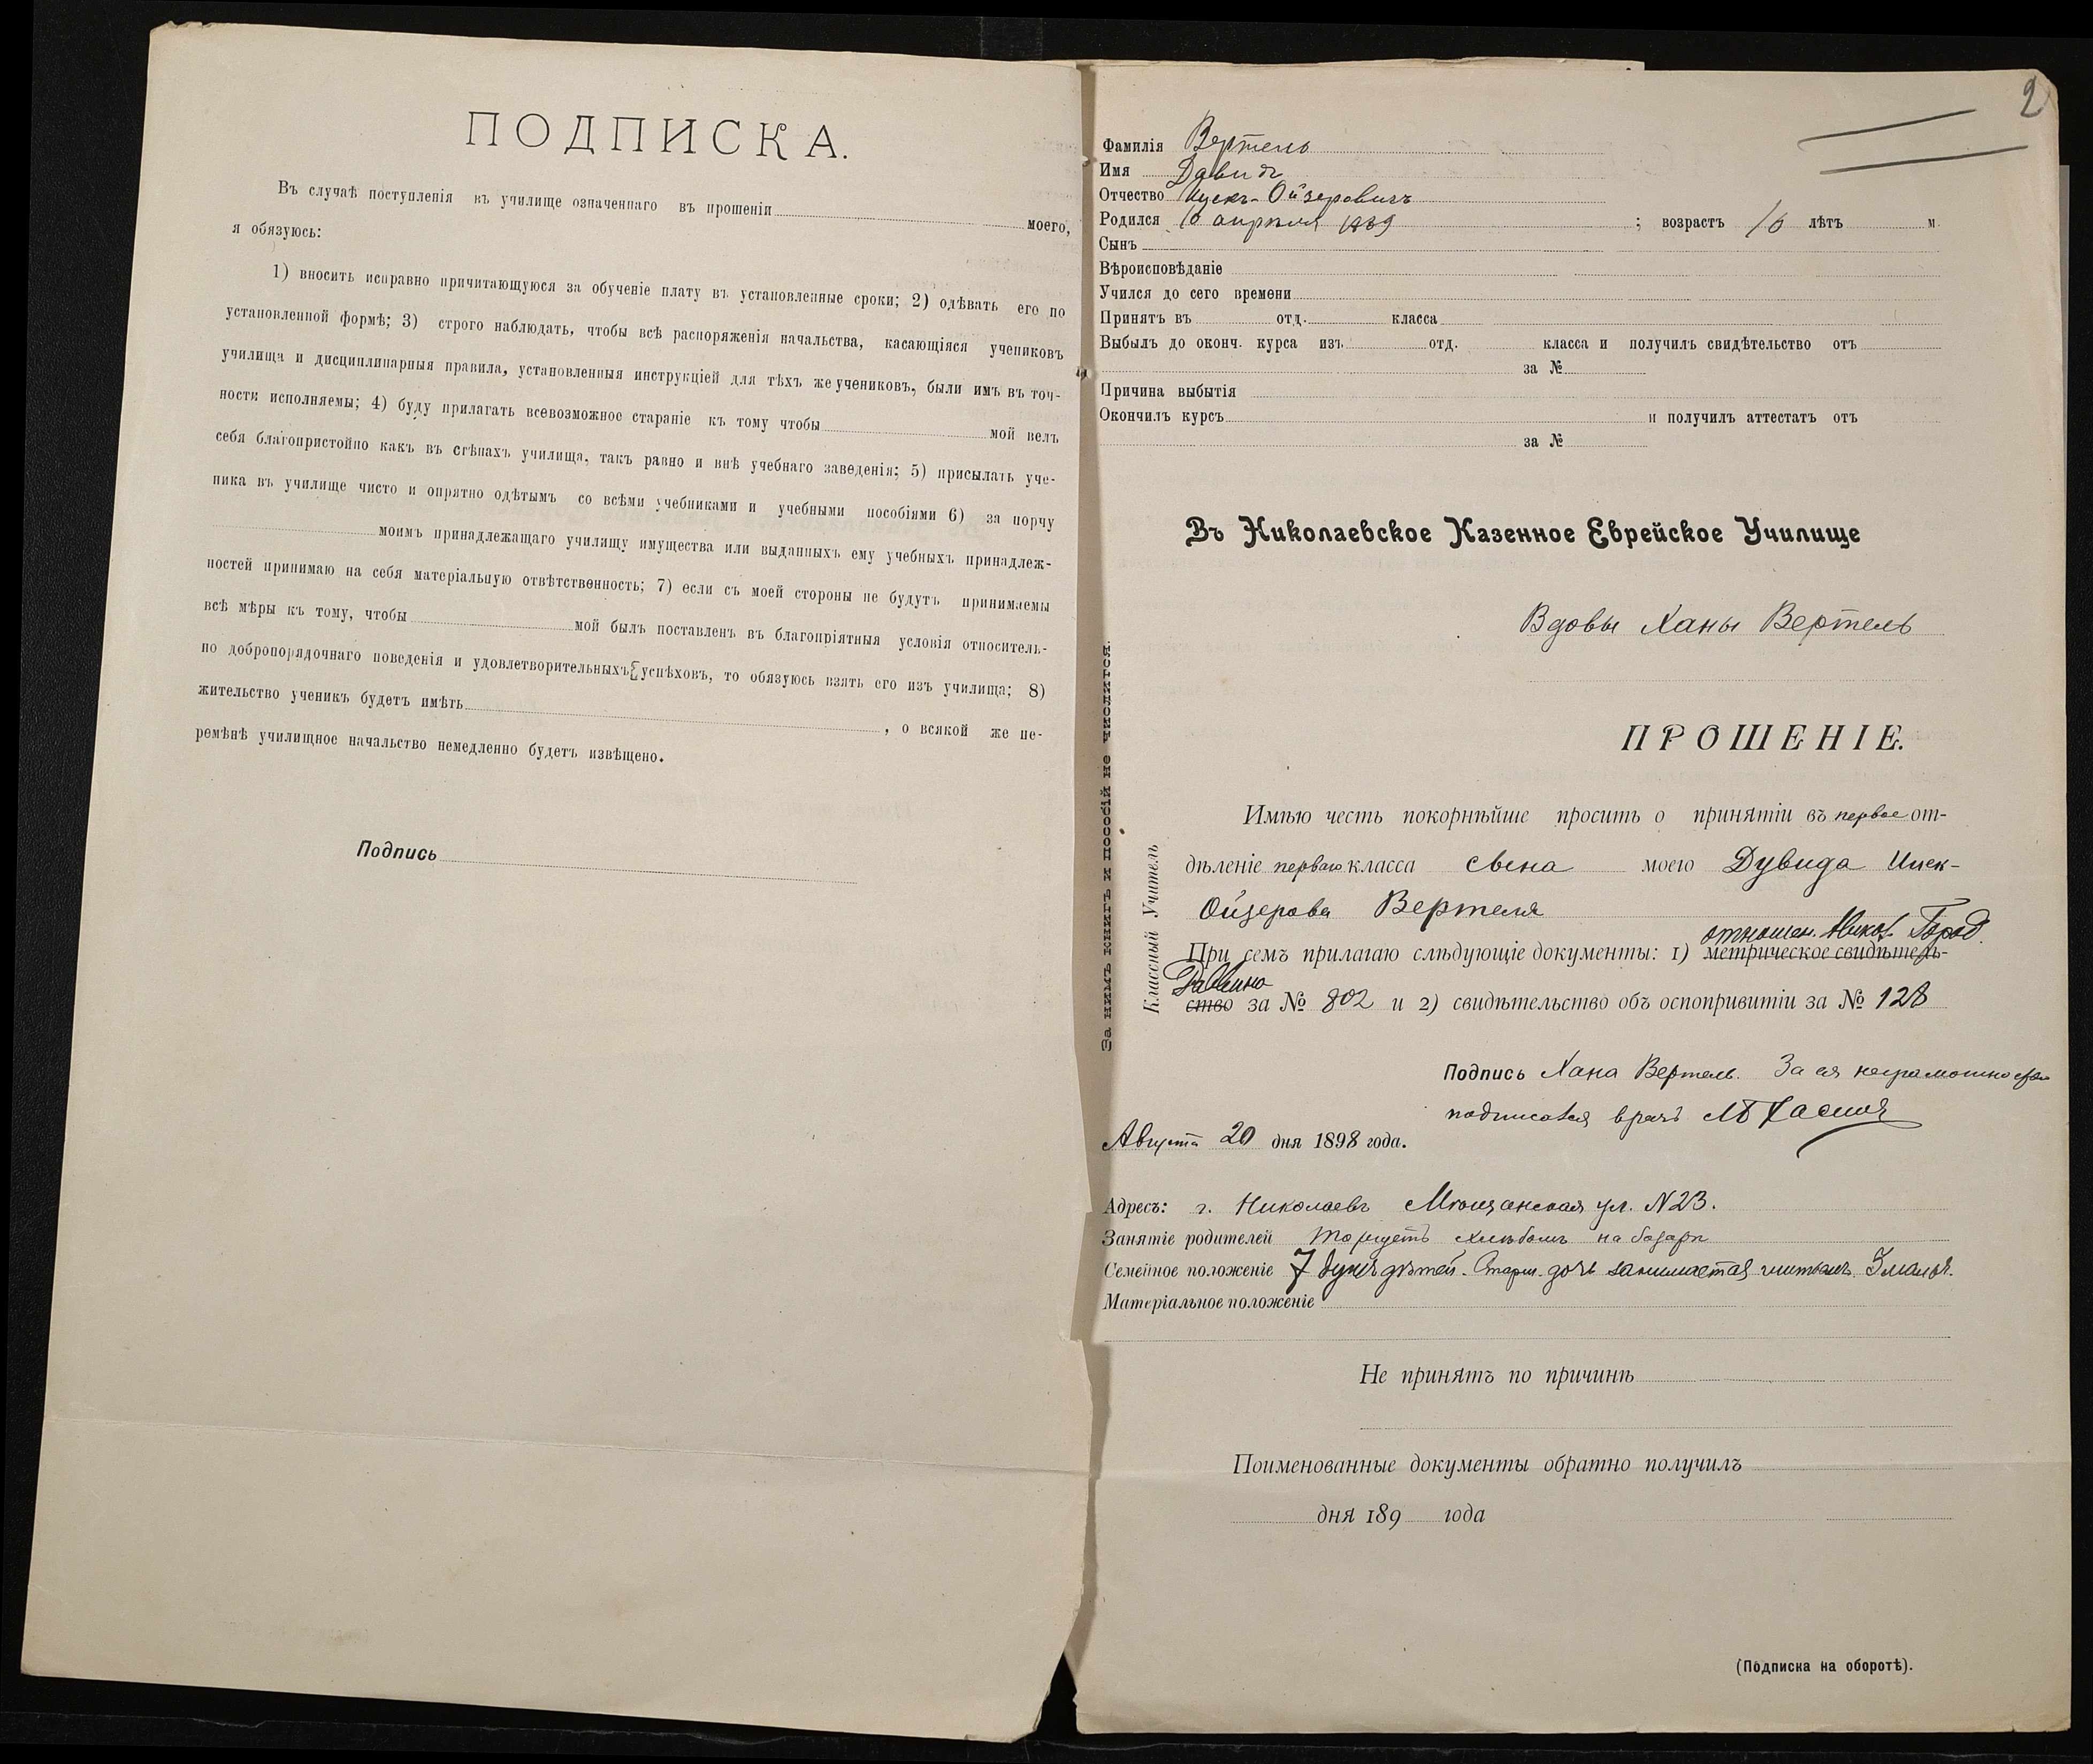 ПОДПИСКА.
Въ случаѣ поступленія въ училище означеннаго въ прошеніи моего,
я обязуюсь:
1) вносить исправно причитающуюся за обученіе плату въ установленные сроки; 2) одѣвать его по
установленной формѣ; 3) строго наблюдать, чтобы всѣ распоряженія начальства, касающіяся учениковъ
училища и дисциплинарныя правила, установленныя инструкціей для тѣхъ же учениковъ, были имъ въ точ-
ности исполняемы; 4) буду прилагать всевозможное стараніе къ тому чтобы мой велъ
себя благопристойно какъ въ стѣнахъ училища, такъ равно и внѣ учебнаго заведенія; 5) присылать уче-
ника въ училище чисто и опрятно одѣтымъ со всѣми учебниками и учебными пособіями 6) за порчу
моимъ принадлежащаго училищу имущества или выданныхъ ему учебныхъ принадлеж-
ностей принимаю на себя матеріальную отвѣтственность; 7) если съ моей стороны не будутъ принимаемы
всѣ мѣры къ тому, чтобы мой былъ поставленъ въ благопріятныя условія относитель-
но добропорядочнаго поведенія и удовлетворительныхъ успѣховъ, то обязуюсь взять его изъ училища; 8)
жительство ученикъ будетъ имѣть , о всякой же пе-
ремѣнѣ училищное начальство немедленно будетъ извѣщено.
Подпись
2
Фамилія Вертель
Имя Давидъ
Отчество Ицекъ-Ойзеровичъ
Родился 10 апрѣля 1889 ; возрастъ лѣтъ м.
Сынъ
Вѣроисповѣданіе
Учился до сего времени
Принятъ въ отд. класса
Выбылъ до оконч. курса изъ отд. класса и получилъ свидѣтельство отъ
за №
Причина выбытія
Окончилъ курсъ и получилъ аттестатъ отъ
за №
За нимъ книгъ и пособій не числится.
Классный Учитель
Въ Николаевское Казенное Еврейское Училище
Вдовы Ханы Вертель
ПРОШЕНІЕ.
Имѣю честь покорнѣйше просить о принятіи въ первое от-
дѣленіе перваго класса сына моего Дувида Ицек-
Ойзерова Вертеля
отношен. Никол. Город.
При семъ прилагаю слѣдующіе документы: 1) метрическое свидѣтель-
Раввина
ство за № 802 и 2) свидѣтельство объ оспопривитіи за № 128
Подпись Хана Вертель. За ея неграмотностью
подписался врачъ
Августа 20 дня 1898 года.
Адресъ: г. Николаевъ Мѣщанская ул. N 23.
Занятіе родителей торгуетъ хлѣбомъ на базарѣ
Семейное положеніе 7 душъ дѣтей. Старш. дочь занимается шитьемъ.
Матеріальное положеніе
Не принятъ по причинѣ
Поименованные документы обратно получилъ
дня 189 года
(Подписка на оборотѣ).